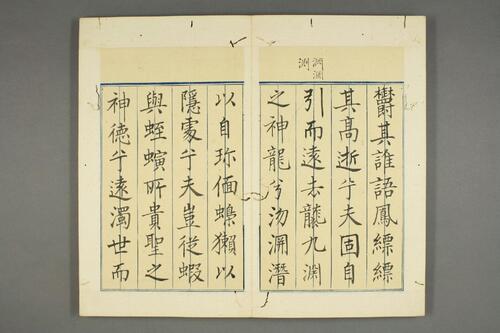 欝其誰語鳳縹縹
其髙逝兮夫固自
引而遠去襲九淵
之神龍兮沕淵潛
以自珍偭蟂獺以
隱處兮夫豈從蝦
與蛭螾所貴聖之
神德兮遠濁世而